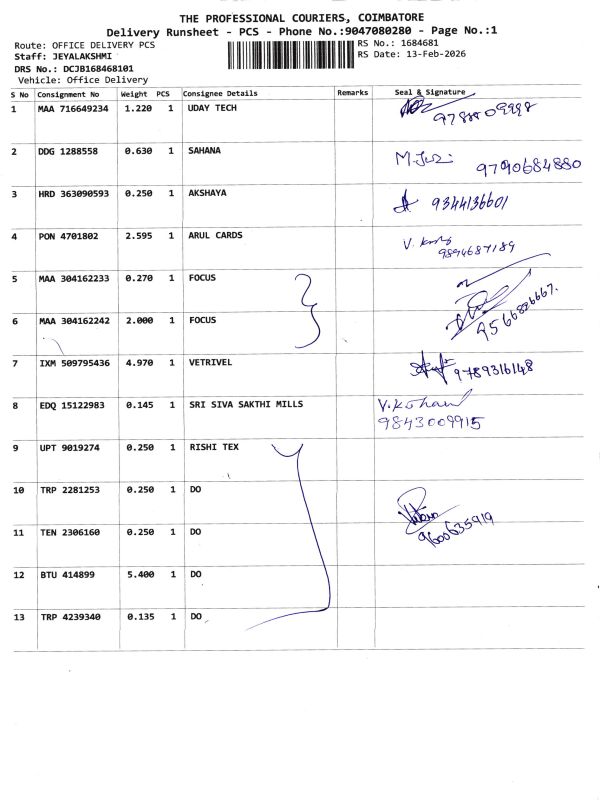 THE PROFESSIONAL COURIERS, COIMBATORE
Delivery Runsheet - PCS - Phone No.:9047080280 - Page No.:1
Route: OFFICE DELIVERY PCS
RS No.: 1684681
Staff: JEYALAKSHMI
RS Date: 13-Feb-2026
DRS No.: DCJB168468101
Vehicle: Office Delivery
S No Consignment No Weight PCS Consignee Details Remarks Seal & Signature
1 MAA 716649234 1.220 1 UDAY TECH
2 DDG 1288558 0.630 1 SAHANA 9790684880
3 HRD 363090593 0.250 1 AKSHAYA 9344136601
4 PON 4701802 2.595 1 ARUL CARDS 9894687189
5 MAA 304162233 0.270 1 FOCUS
6 MAA 304162242 2.000 1 FOCUS 9566826667.
7 IXM 509795436 4.970 1 VETRIVEL 9789316148
8 EDQ 15122983 0.145 1 SRI SIVA SAKTHI MILLS 9843009915
9 UPT 9019274 0.250 1 RISHI TEX
10 TRP 2281253 0.250 1 DO
11 TEN 2306160 0.250 1 DO 9600635919
12 BTU 414899 5.400 1 DO
13 TRP 4239340 0.135 1 DO